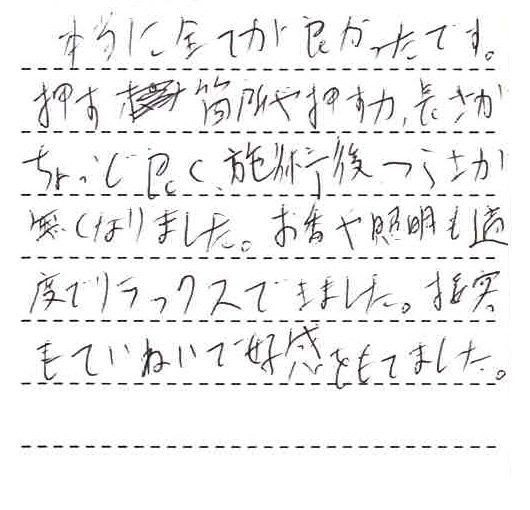 本当に全てが良かったです。
押す箇所や押す力、長さが
ちょうど良く、施術後つらさが
無くなりました。お香や照明も適
度でリラックスできました。接客
もていねいで好感をもてました。